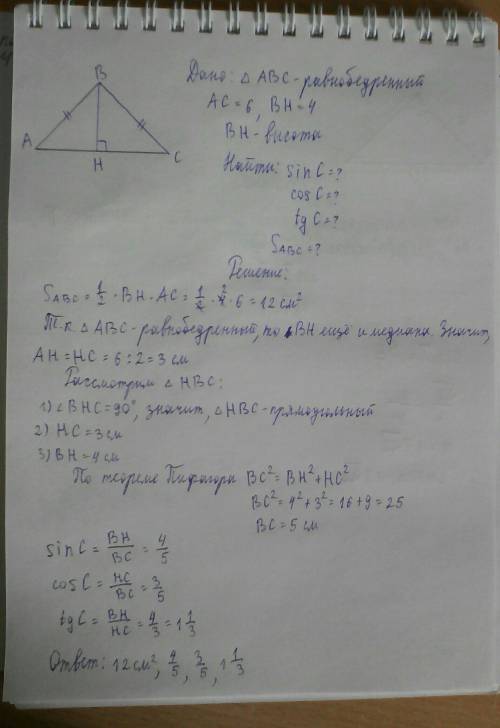 B
A
H
C
Дано: △ABC-равнобедренный
AC=6, BH=4
BH-высота
Найти: sinC=?
cosC=?
tgC=?
S_ABC=?
Решение:
S_ABC=1/2·BH·AC=1/2·4·6=12см²
Т.к. △ABC-равнобедренный, то BH ещё и медиана. Значит,
AH=HC=6:2=3см
Рассмотрим △HBC:
1) ∠BHC=90°, значит, △HBC-прямоугольный
2) HC=3см
3) BH=4см
По теореме Пифагора BC²=BH²+HC²
BC²=4²+3²=16+9=25
BC=5см
sinC=BH/BC=4/5
cosC=HC/BC=3/5
tgC=BH/HC=4/3=1 1/3
Ответ: 12см², 4/5, 3/5, 1 1/3